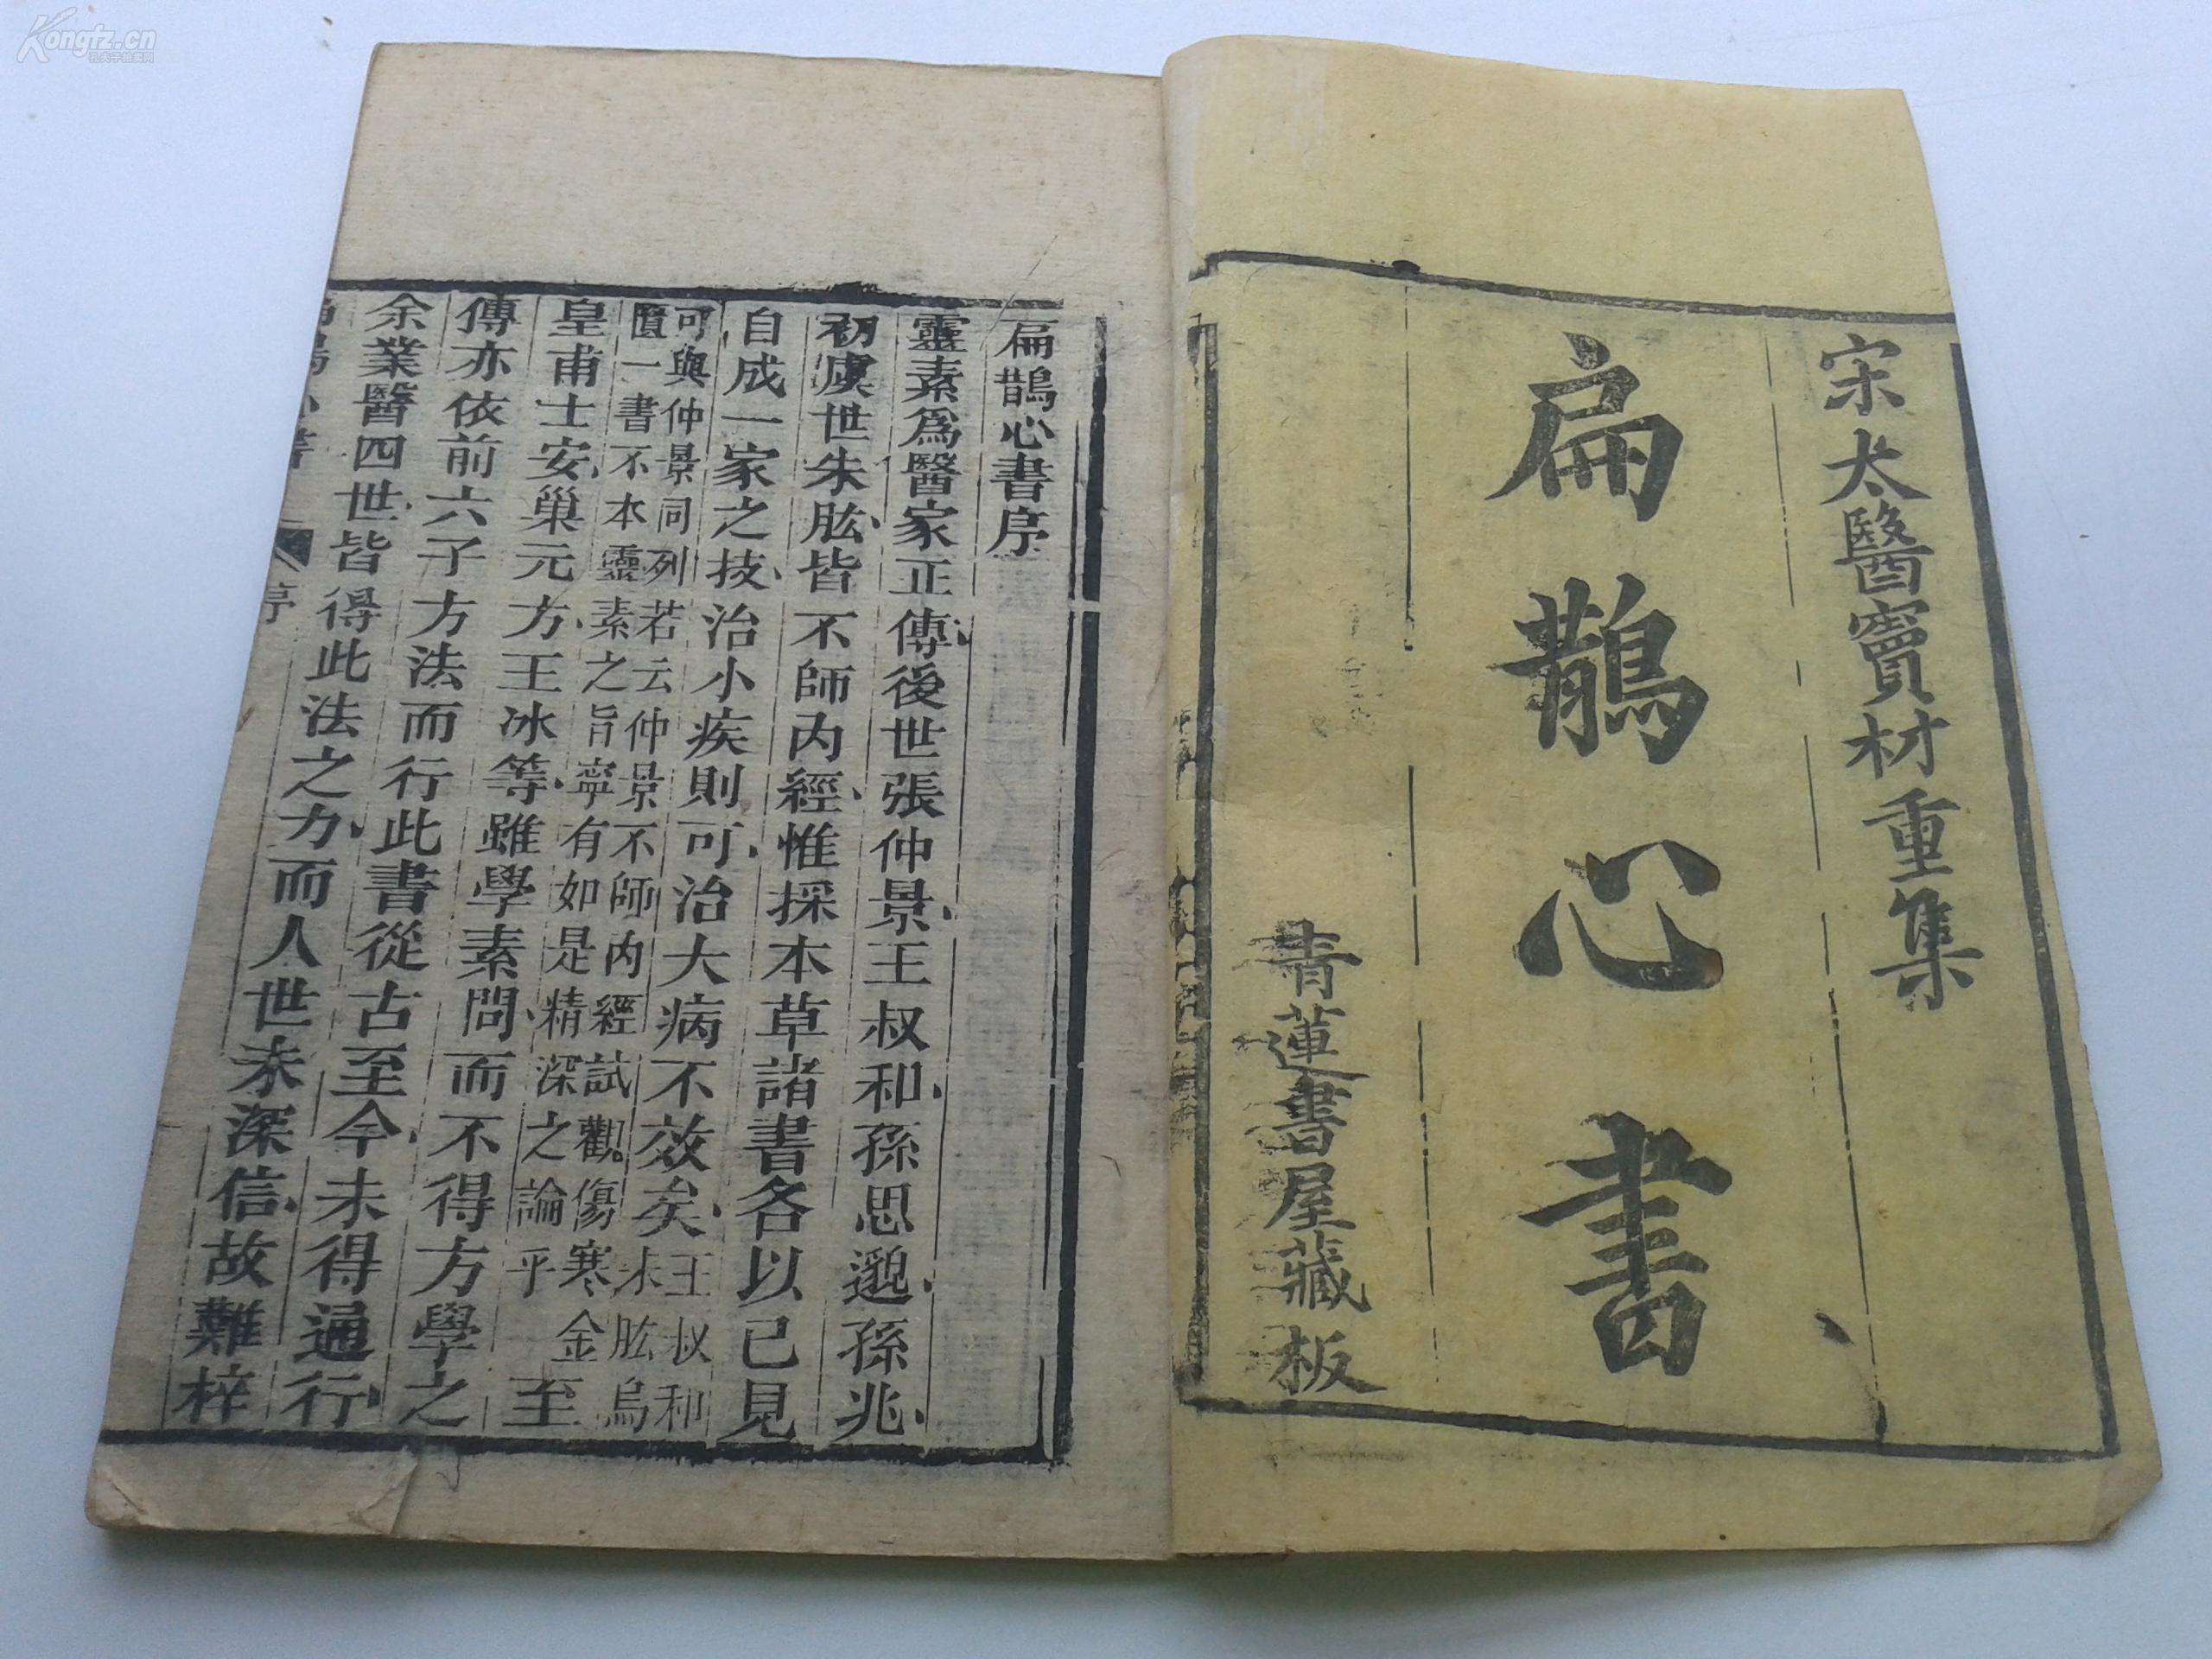 Kongfz.cn
宋太醫竇材重集
扁鵲心書
青蓮書屋藏板
扁鵲心書序
靈素爲醫家正傳後世張仲景王叔和孫思邈孫兆
初虞世朱肱皆不師內經惟採本草諸書各以已見
自成一家之技治小疾則可治大病不效矣王叔和朱肱烏
可與仲景同列若云仲景不師內經試觀傷寒金
匱一書不本靈素之旨寧有如是精深之論乎至
皇甫士安巢元方王冰等雖學素問而不得方學之
傳亦依前六子方法而行此書從古至今未得通行
余業醫四世皆得此法之力而人世未深信故難梓
序